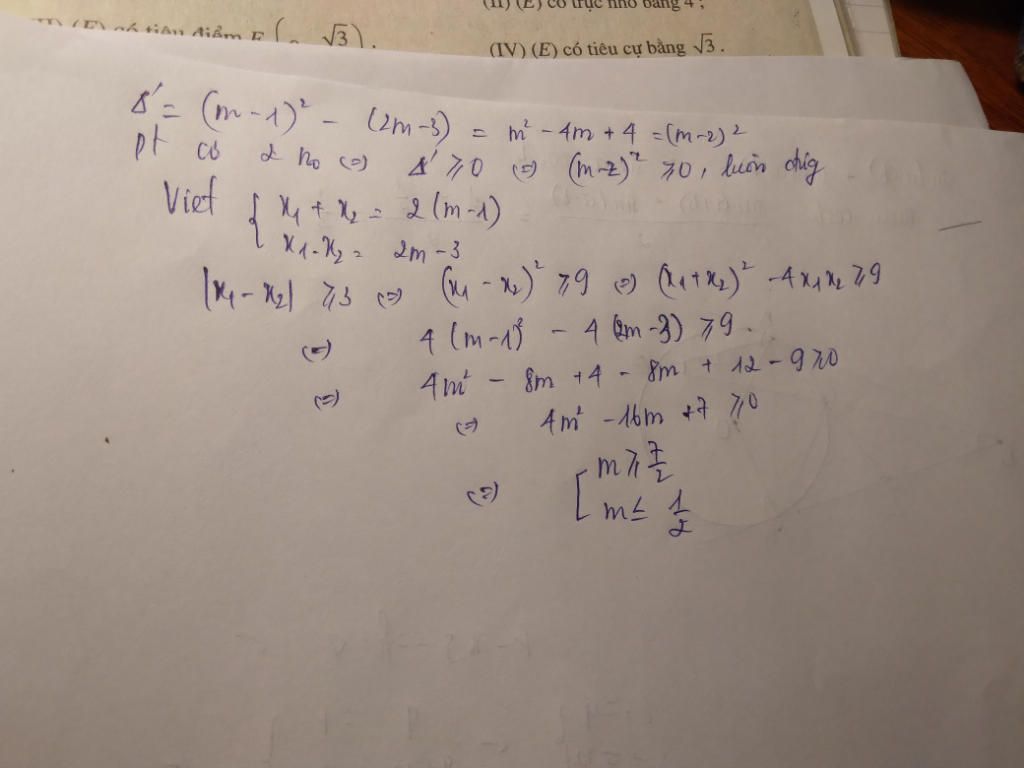 (II) (E) có trục nhỏ bằng 4 ;
(E) có tiêu điểm F √3) .
(IV) (E) có tiêu cự bằng √3 .
Δ' = (m - 1)² - (2m - 3) = m² - 4m + 4 = (m - 2)²
pt có 2 no (=) Δ' ≥ 0 (=) (m - 2)² ≥ 0, luôn
Viet { x₁ + x₂ = 2(m - 1)
x₁ . x₂ = 2m - 3
|x₁ - x₂| ≥ 3 (=) (x₁ - x₂)² ≥ 9 (=) (x₁ + x₂)² - 4x₁x₂ ≥ 9
(=) 4(m - 1)² - 4(2m - 3) ≥ 9
(=) 4m² - 8m + 4 - 8m + 12 - 9 ≥ 0
(=) 4m² - 16m + 7 ≥ 0
(=) [ m ≥ 7/2
m ≤ 1/2